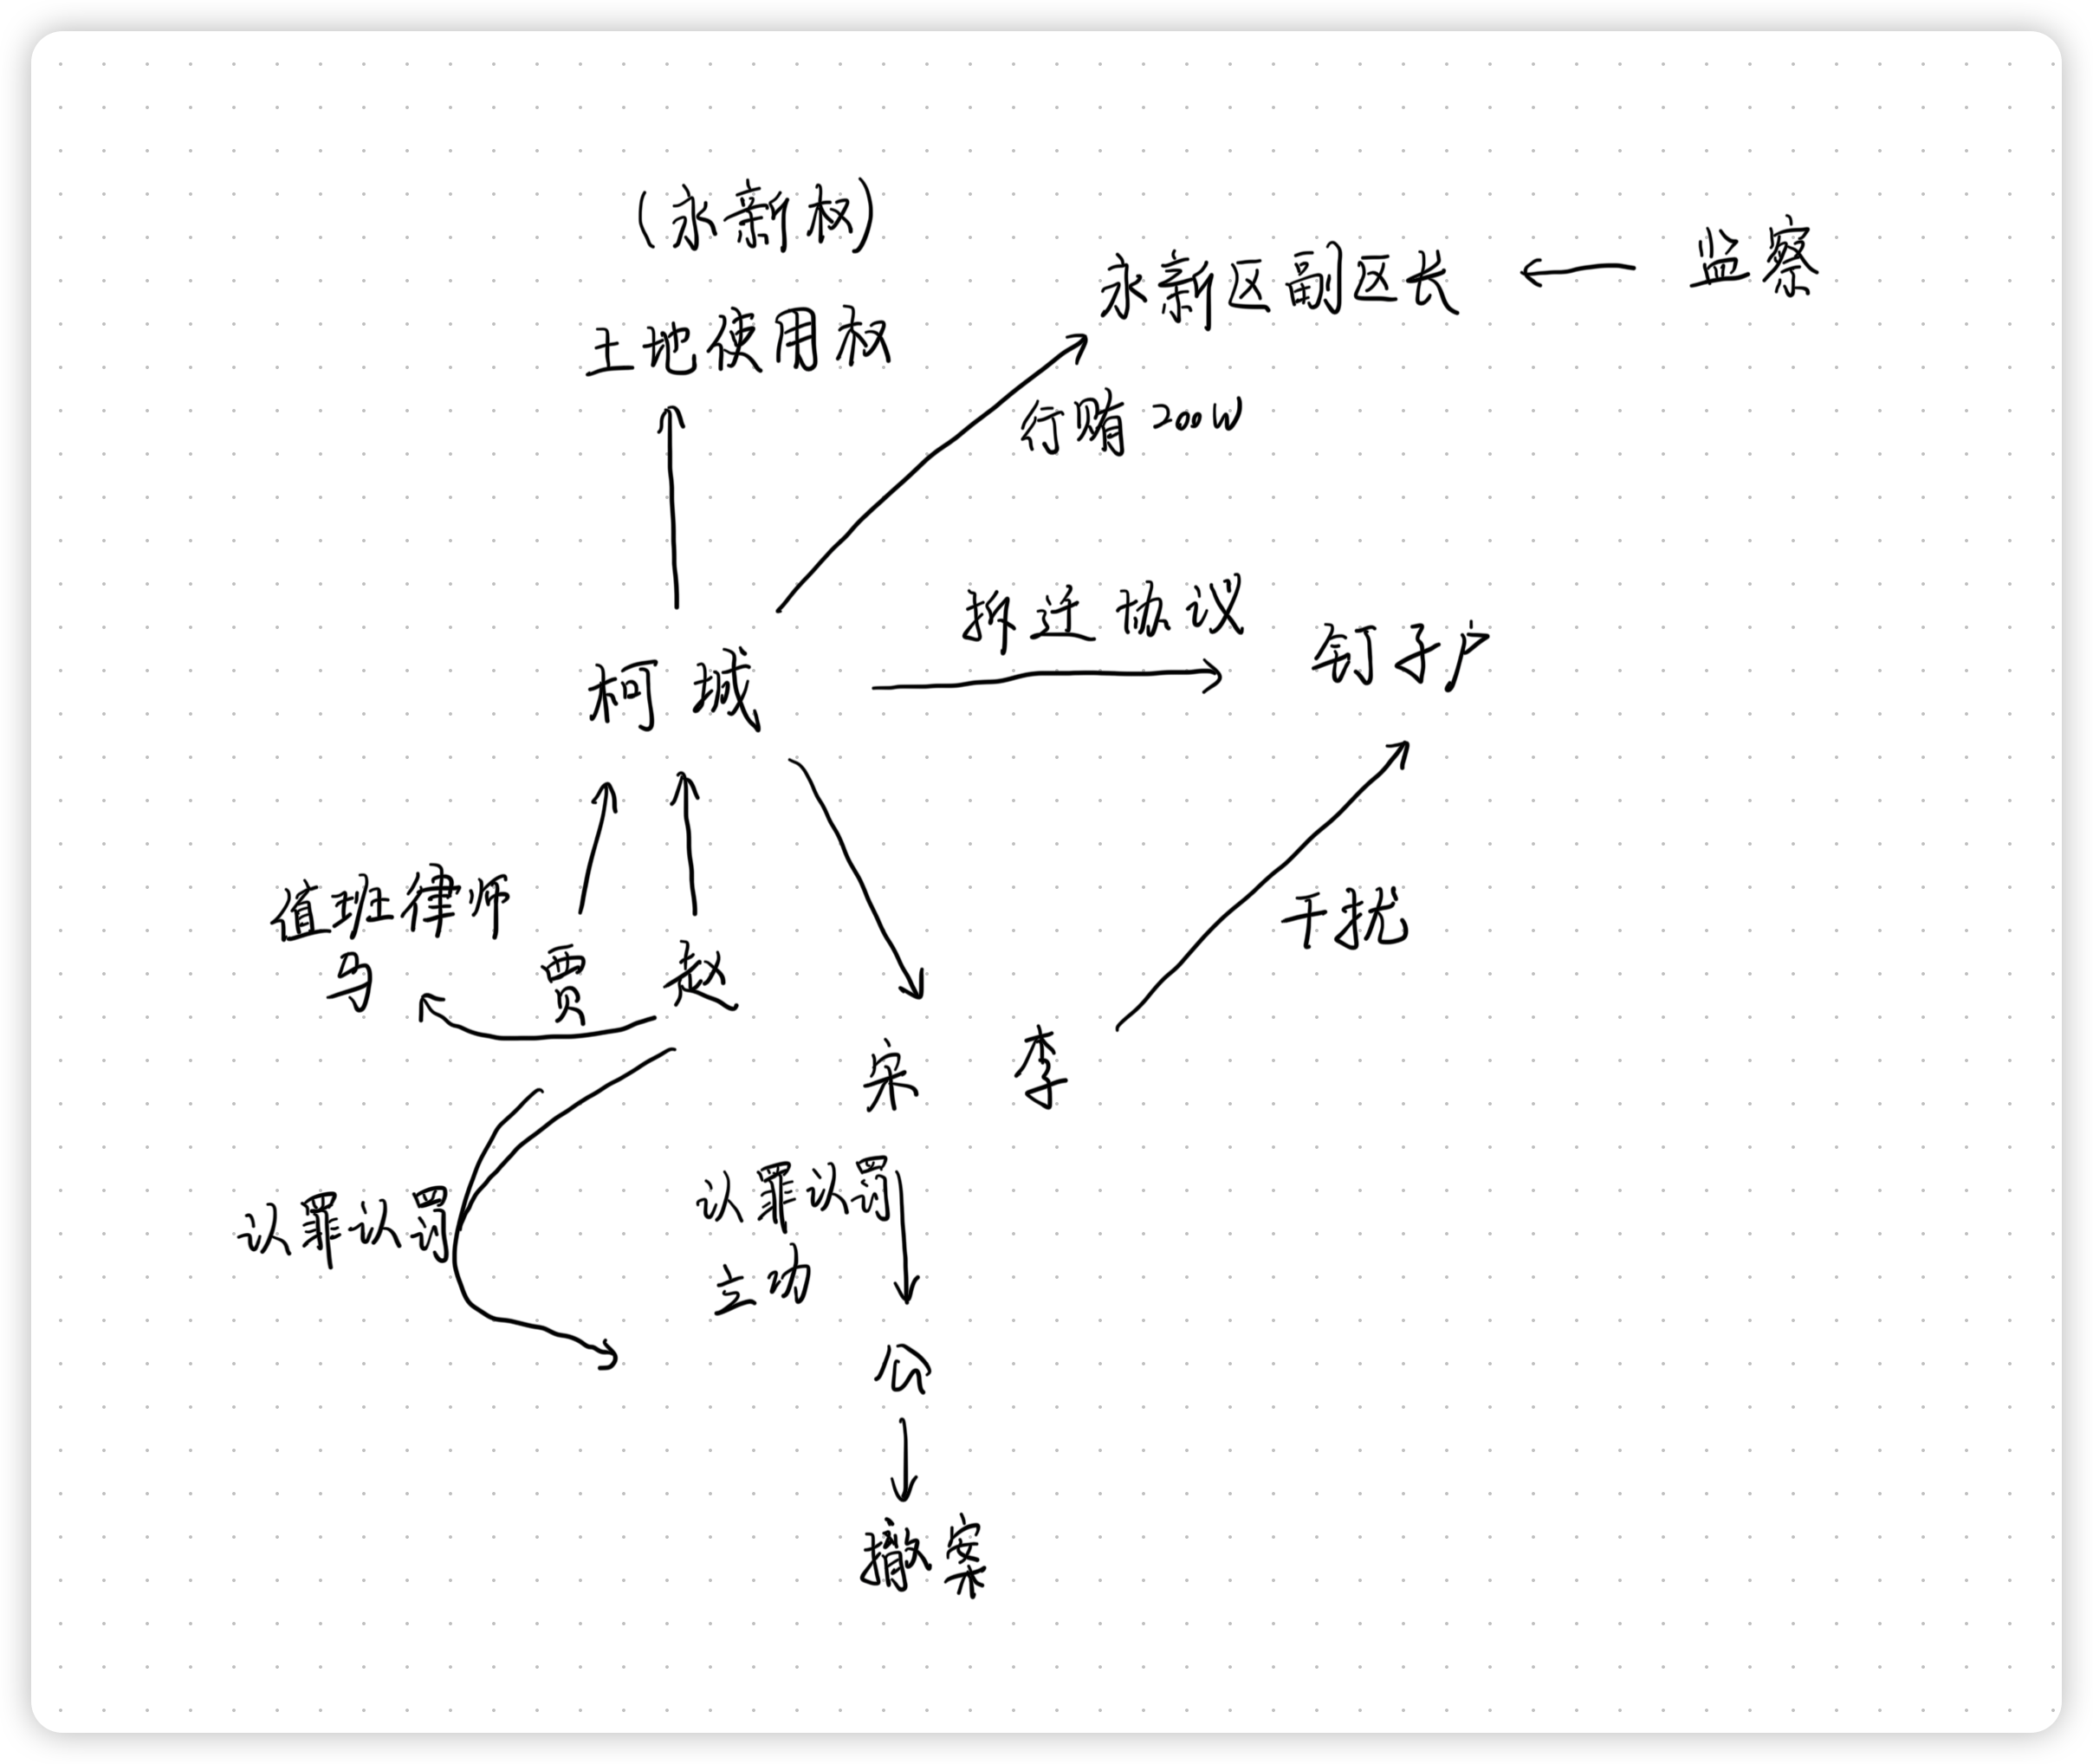 (永新权)
土地使用权
永新区副区长
监察
行贿 200W
拆迁协议
钉子户
柯城
干扰
值班律师
马
贾 赵
宋 李
认罪认罚
认罪认罚
立功
公
撤案